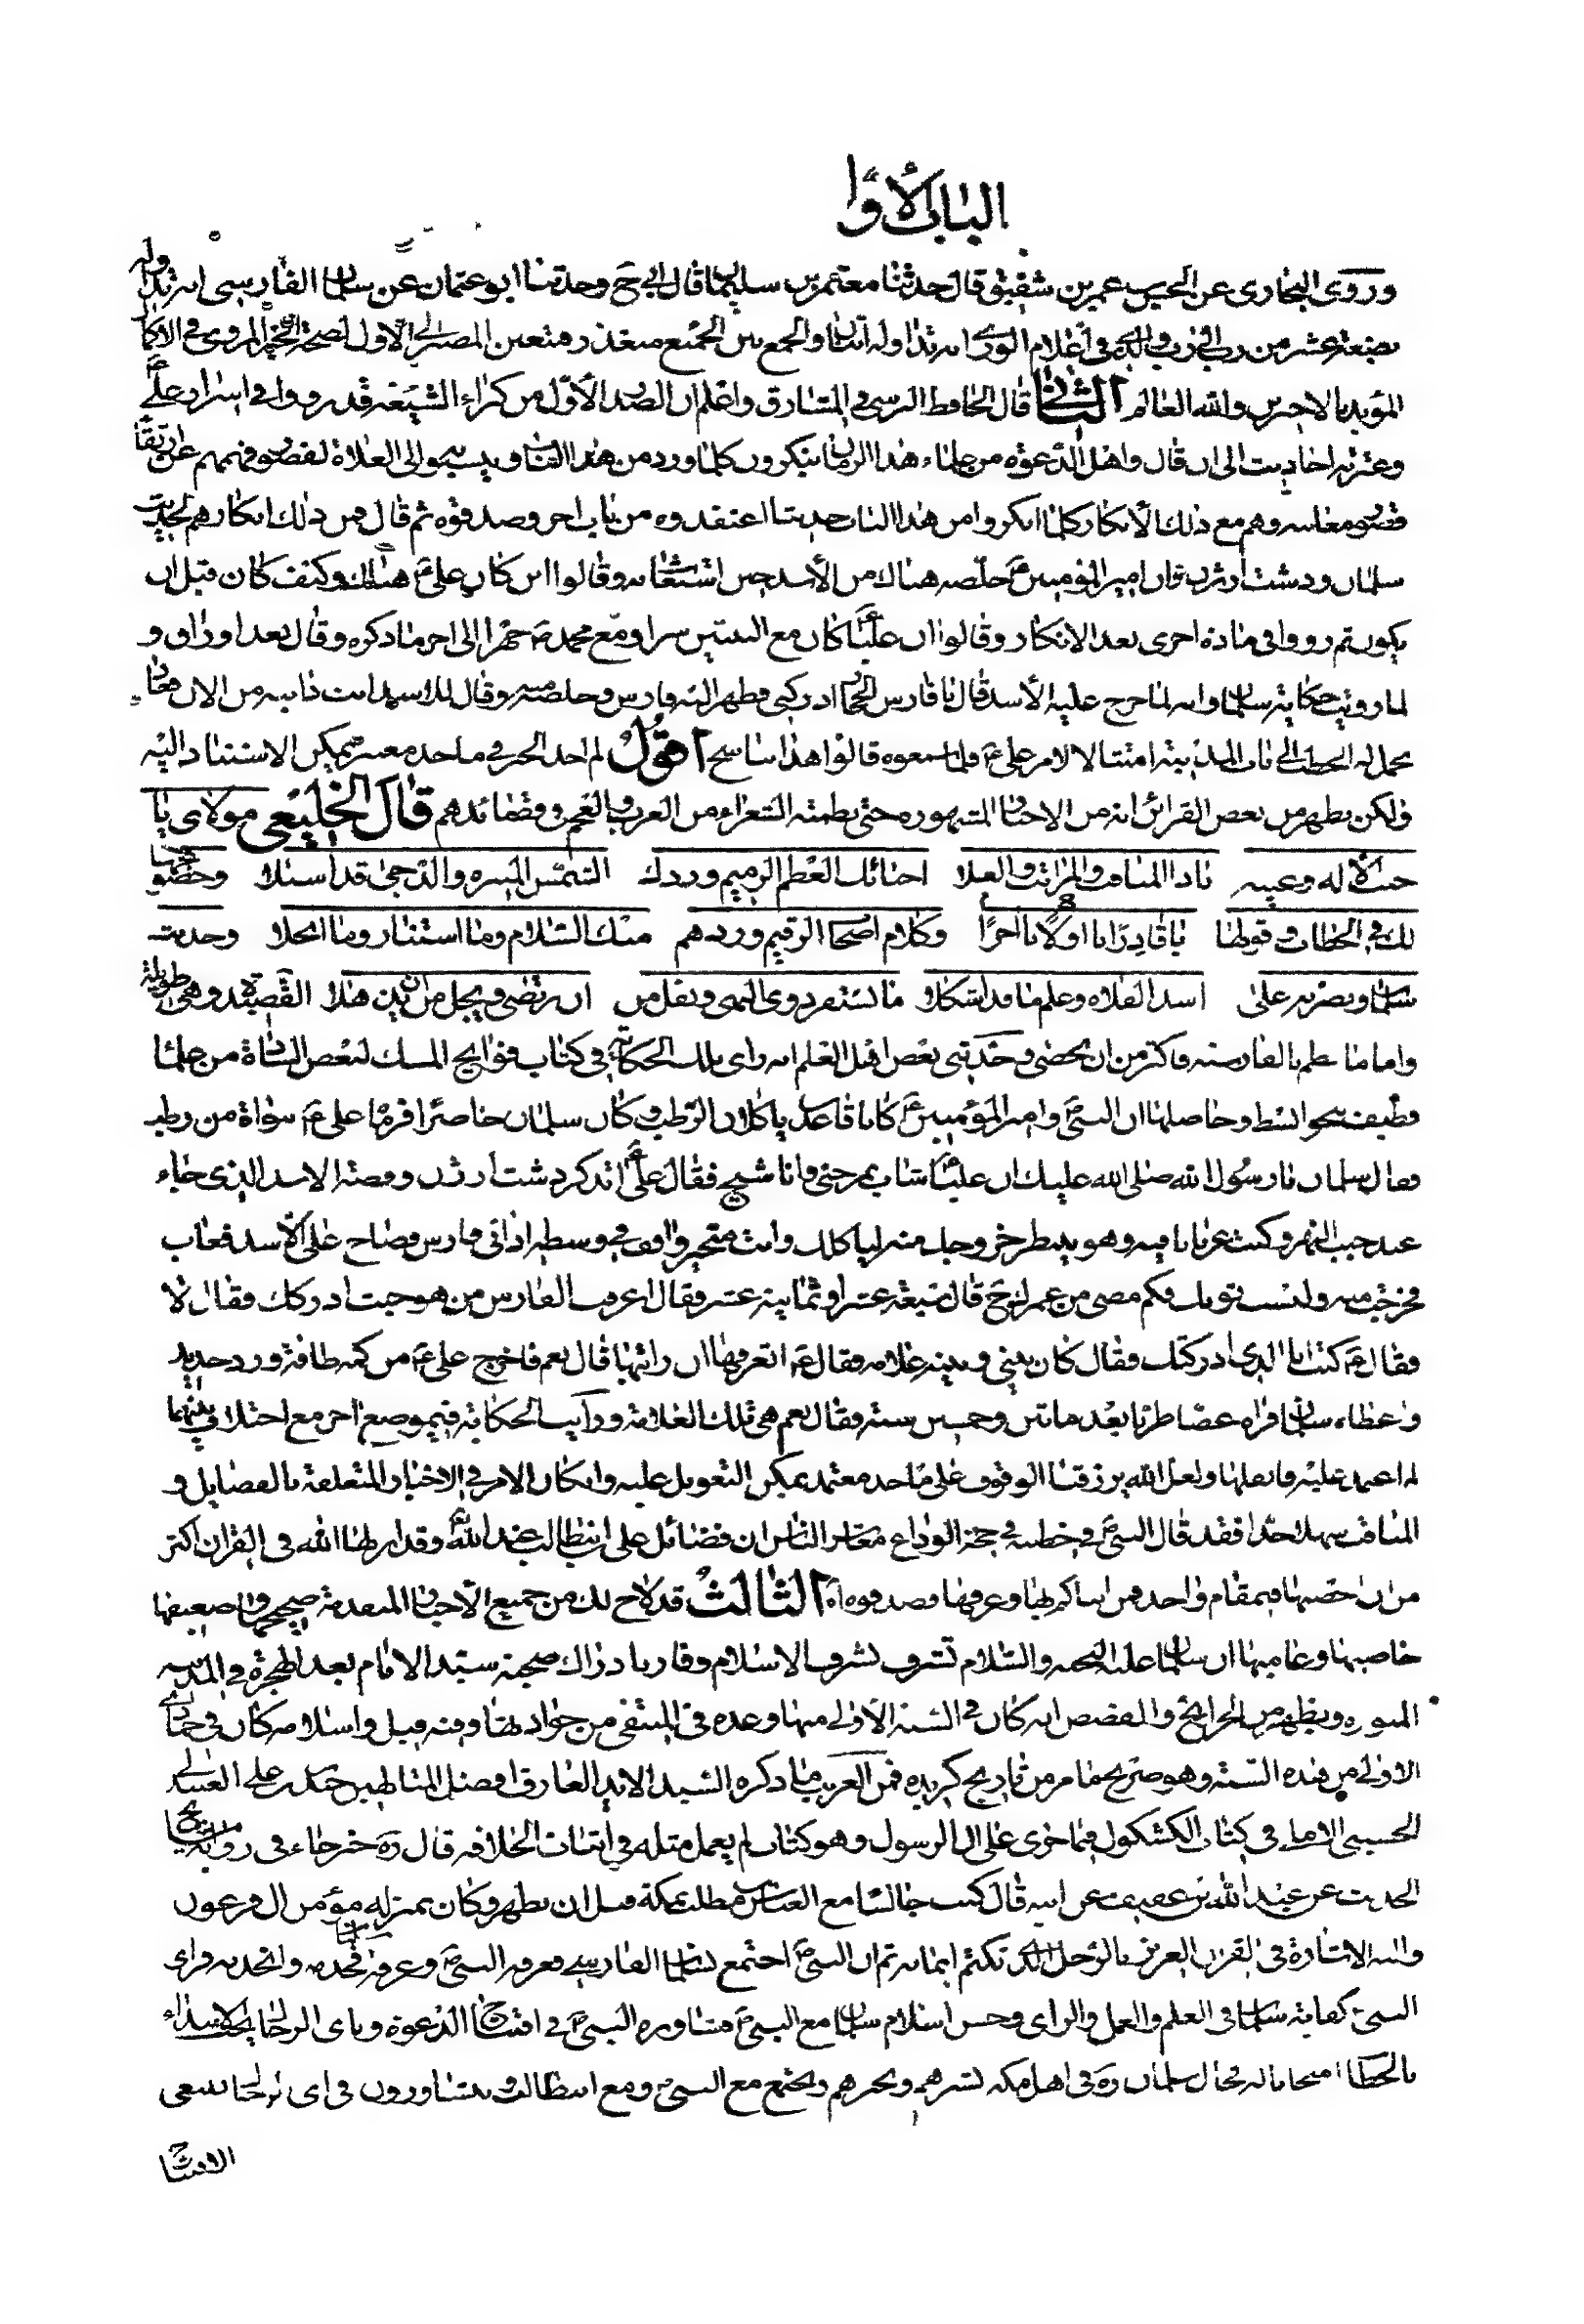 الباب الأول
وروى البخاري عن الحسن بن عمر بن شقيق قال حدثنا معتمر بن سليمان قال ابي ح وحدثنا ابو عثمان عن سلمان الفارسي انه تداوله
بضعة عشر من رب الى رب وفي اعلام الورى انه تداوله والجمع بين الجميع متعذر فتعين المصير الى الأول لصحة المروي في الاكمال
المؤيد بالاخرين والله العالم الثاني قال الحافظ البرسي في المشارق واعلم ان الصدر الأول من كبراء الشيعة قد رووا في اسرار علي
وعترته احاديث الى ان قال واهل الدعوة من علماء هذا الزمان ينكرون كلما ورد من هذا الباب وينسبوه الى الغلاة لقصور فهمهم عن
وهم مع ذلك الانكار كلما انكروا من هذا الباب حديثا اعتقدوه من باب اخر وصدقوه ثم قال فمن ذلك انكارهم لحديث
سلمان ودشت ارژن وان امير المؤمنين ع خلصه هناك من الأسد حين استغاث به وقالوا اين كان علي ع هناك وكيف كان قبل ان
يكون ثم رووا في مادة اخرى بعد الانكار وقالوا ان عليا ع كان مع النبيين سرا ومع محمد ص جهرا الى اخر ما ذكره وقال بعد اوراق و
لما رويت حكاية سلمان وانه لما خرج عليه الأسد قال يا فارس الحجاز ادركني فظهر اليه فارس وخلصه منه وقال للاسد انت دابته من الان فعاد
يحمل له الحطب الى باب المدينة امتثالا لامر علي ع فلما سمعوه قالوا هذا تناسخ اقول لم اجد الخبر في ماخذ معتبر يمكن الاستناد اليه
ولكن يظهر من بعض القرائن انه من الاخبار المشهورة حتى نظمته الشعراء من العرب والعجم في قصائدهم قال الخليعي مولاي يا
حب الاله وعيبه يا ذا المناقب والمراتب والعلا احيائك العظم الرميم وردك الشمس المنيرة والدجى قد اسبلا وخضوعها
لك في الخطاب وقولها يا قادرا يا اولا يا اخرا وكلام اصحاب الرقيم وردهم منك السلام وما استنار وما انجلا وحديث
سلمان ونصرته على اسد الفلاة وعلم ما قد اشكلا ان يرتضي ويجل من هذا القصيدة وهي طويلة
واما ما نظم بالفارسية فاكثر من ان يحصى وحدثني بعض اهل العلم انه راى تلك الحكاية في كتاب فوايح المسك لبعض السادة من علماء
بنحو ابسط وحاصلها ان النبي ص وامير المؤمنين ع كانا قاعدين ياكلان الرطب وكان سلمان حاضرا فرماه علي ع بنواة من رطب
فقال سلمان يا رسول الله صلى الله عليك ان عليا شاب يمزح بي وانا شيخ فقال علي ع اتذكر دشت ارژن وقصة الاسد الذي جاء
عند جنب النهر وكنت عريانا فيه وهو ينتظر خروجك منه لياكلك وانت متحير واقف في وسطه اذ اتى فارس وصاح على الأسد فغاب
فخرجت منه ولبست ثوبك فكم مضى من عمرك ح قال سبعة عشر او ثمانية عشر فقال اعرف الفارس من هو حيث ادركك فقال لا
فقال ع كنت انا الذي ادركتك فقال كان بيني وبينه علامة فقال ع اتعرفها ان رايتها قال نعم فاخرج علي ع من كمه طاقة ورد جديد
واعطاه سلمان فراه غضا طريا بعد ماتين وخمسين سنة فقال نعم هي تلك العلامة ورايت الحكاية في موضع اخر مع اختلاف بينهما
لم اعتمد عليه فانقلها ولعل الله يرزقنا الوقوف على ماخذ معتمد يمكن التعويل عليه وانكار الامر في الاخبار المتعلقة بالفضايل و
المناقب سهل جدا فقد قال النبي ص في خطبته في حجة الوداع معاشر الناس ان فضائل علي بن ابيطالب عند الله وقد انزلها الله في القران اكثر
من ان احصيها في مقام واحد فمن انباكم بها وعرفها فصدقوه اه الثالث قد لاح لك من جميع الاخبار المتقدمة صحيحها وضعيفها
خاصيها وعاميها ان سلمان عليه التحية والسلام تشرف بشرف الاسلام وفاز بادراك صحبة سيد الانام بعد الهجرة في المدينة
المنورة ويظهر من الخرايج والقصص انه كان في السنة الاولى منها وعده في المنتقى من حوادثها وفيه قيل واسلامه كان في جمادى
الاولى من هذه السنة وهو صريح ما مر من تاريخ كزيده فمن الغريب ما ذكره السيد الايد العارف افضل المتالهين حيدر بن علي العبيدلي
الحسيني الاملي في كتاب الكشكول فيما جرى على ال الرسول وهو كتاب لم يعمل مثله في اثبات الخلافة قال ره خبر جاء في رواية
الحديث عن عبد الله بن عفيف عن ابيه قال كنت جالسا مع العباس بن عبد المطلب بمكة قبل ان يظهر وكان بمنزلة مؤمن ال فرعون
واليه الاشارة في القران العزيز بالرجل الذي يكتم ايمانه ثم ان النبي ص اجتمع بسلمان الفارسي فعرفه النبي ص وعرفه واتخذه فراى
النبي ص كفاية سلمان في العلم والعمل والراى وحسن اسلام سلمان مع النبي ص مشاورة النبي ص في افتتاح الدعوة وباى الرجال الابتداء
بالخطاب فجال سلمان ره في اهل مكة يسبرهم ويخبرهم ويجتمع مع النبي ص ومع ابيطالب ويتشاورون في اى رجل ينبغي
الافتتاح